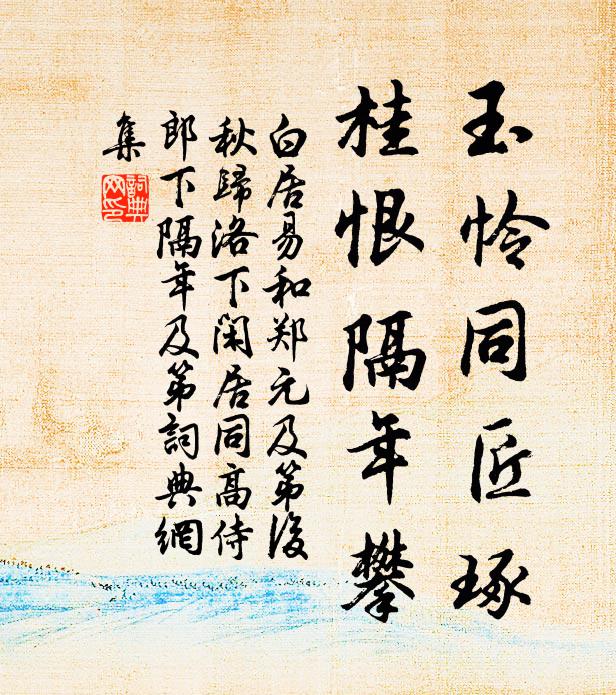 玉怜同匠琢
桂恨隔年攀
白居易和郑元及第後
秋歸洛下閑居同高侍
郎下隔年及第詞典網
集
詞典
网印